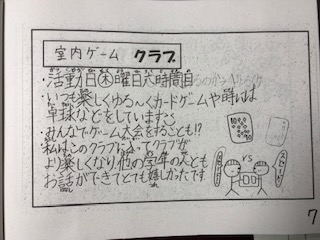 室内ゲーム クラブ
・活動日(木)曜日六時間目
・いつも楽しくゆる〜くカードゲームや時には
卓球などをしています
・みんなでゲーム大会をすることも!?
私はこのクラブに入ってクラブが
より楽しくなり、他の学年の人とも
お話ができてとても嬉しかったです
VS
7